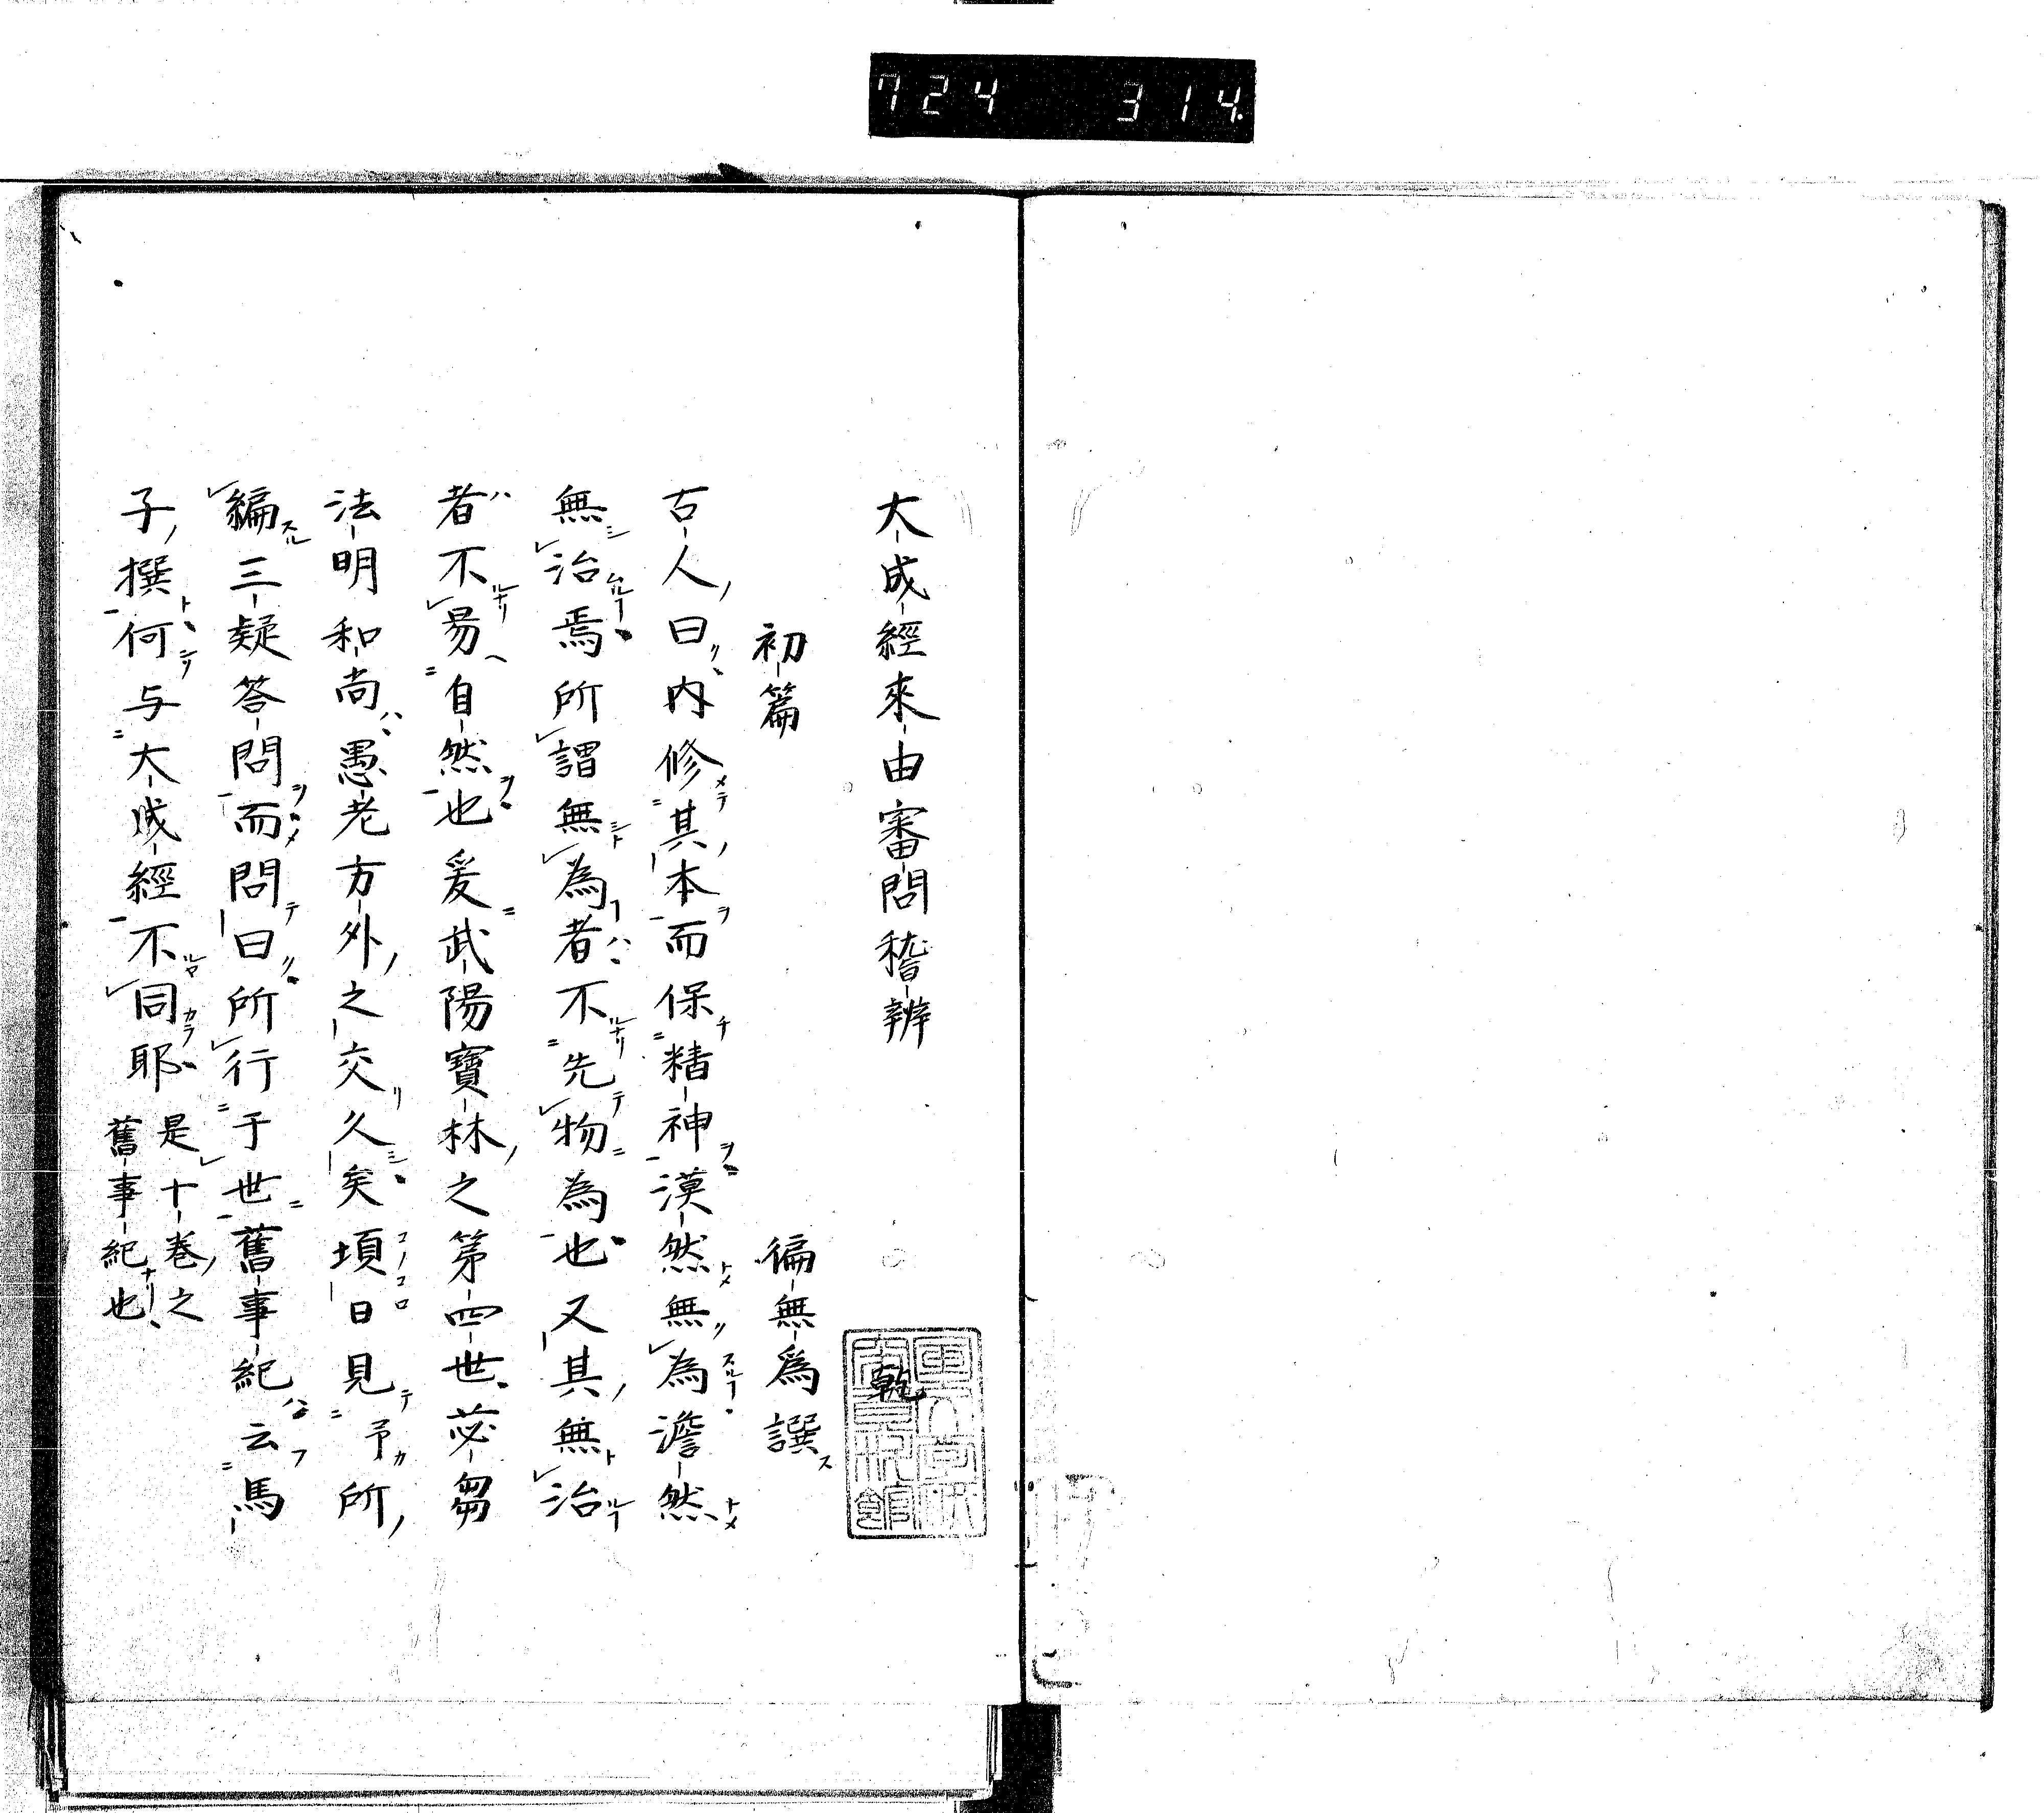 724 314
大成經來由審問稽辨 乾
初篇 徧無爲譔
古人曰内修其本而保精神漠然無為澹然
無治焉所謂無為者不先物為也又其無治
者不易自然也爰武陽寶林之第四世苾蒭
法明和尚愚老方外之交久矣頃日見予所
編三疑答問而問曰所行于世舊事紀云馬
子撰何与大成經不同耶 是十巻之
舊事紀也